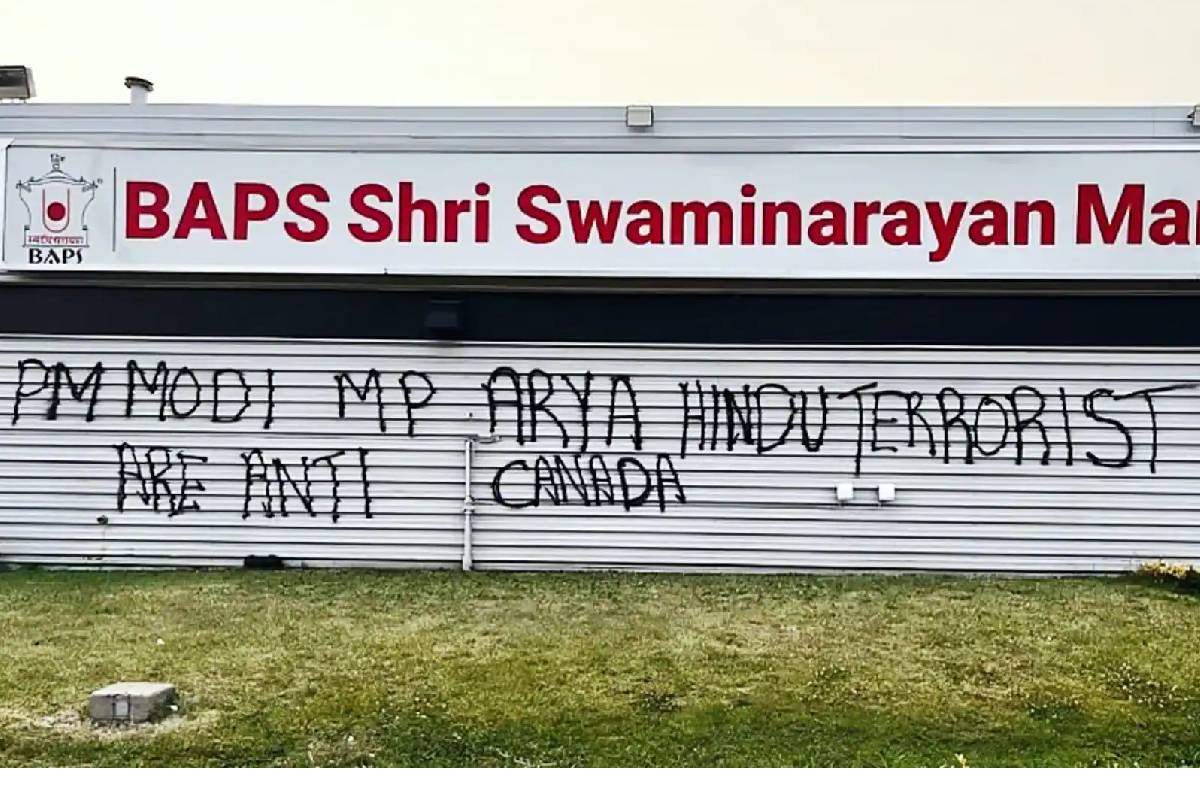 BAPS Shri Swaminarayan Ma
BAPS
PM MODI MP ARYA HINDU TERRORIST
ARE ANTI CANADA